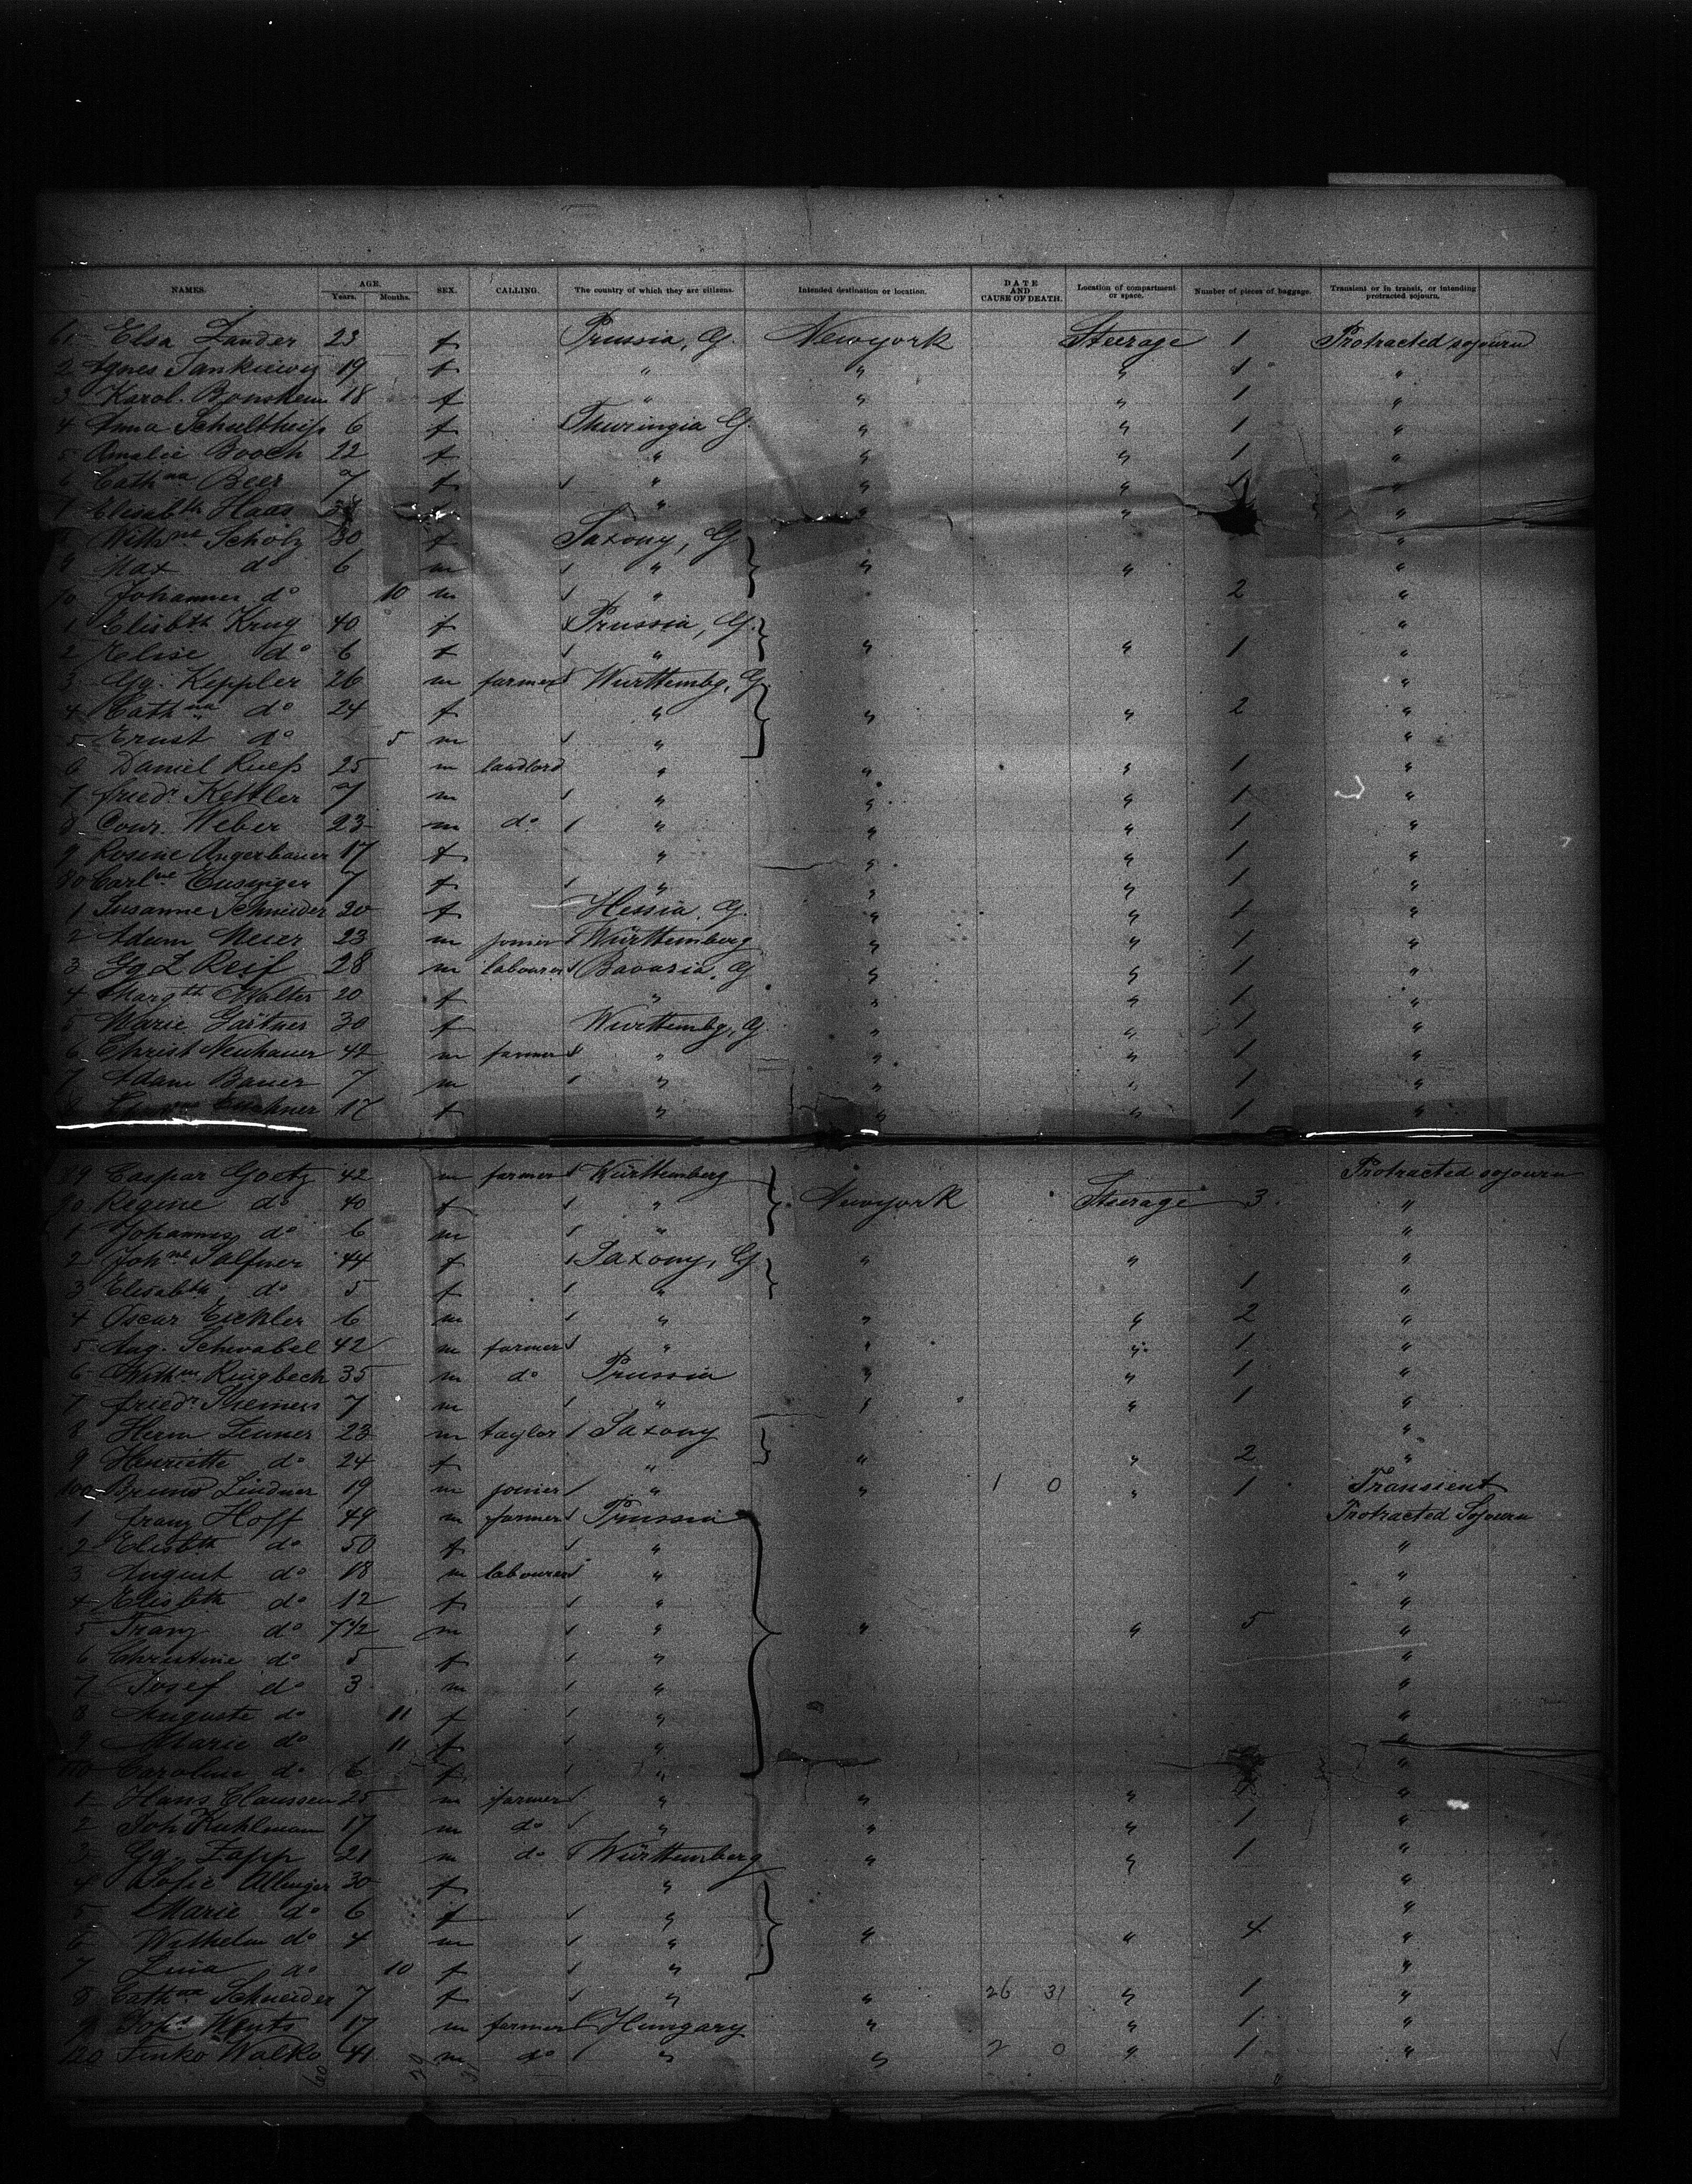 NAMES. AGE. Years. Months. SEX. CALLING. The country of which they are citizens. Intended destination or location. DATE AND CAUSE OF DEATH. Location of compartment or space. Number of pieces of baggage. Transient or in transit, or intending protracted sojourn.
61 Elsa Zander 23 f Prussia, G. Newyork Steerage 1 Protracted sojourn
2 Agnes 19 f " " " 1 "
3 Karol. 18 f " " " 1 "
4 Anna Schultheiß 6 f Thuringia G. " " 1 "
5 Amalie Booch 22 f " " " 1 "
6 Cathna Beer 7 f " " " 1 "
7 Elisabth Haas " " "
8 Wilhne Scholz 30 f Saxony, G "
9 Max do 6 m " " " "
70 Johannes do 10 m " 2 "
1 Elisbth Krug 40 f Prussia, G. "
2 Elise do 6 f " " " 1 "
3 Gg. Keppler 26 m farmer Württembg, G. "
4 Cathna do 24 f " " " 2 "
5 Ernst do 5 m " "
6 Daniel Rueß 25 m landlord " " " 1 "
7 Friedr. Kettler 7 m " " " 1 "
8 Conr. Weber 23 m do " " " 1 "
9 Rosine Angerbauer 17 f " " " 1 "
80 Carlne Ensinger 7 f " " " 1 "
1 Susanne Schneider 20 f Hessia, G. " " 1 "
2 Adam Meier 23 m joiner Württemberg " " 1 "
3 Gg L Reif 28 m labourer Bavaria, G " " 1 "
4 Margth Walter 20 f " " " 1 "
5 Marie Gärtner 30 f Württembg, G " " 1 "
6 Christ Neuhauer 42 m farmer " " " 1 "
7 Adam Bauer 7 m " " " 1 "
8 17 f " " " 1 "
89 Caspar Goetz 42 m farmer Württemberg Protracted sojourn
90 Regine do 40 f " Newyork Steerage 3 "
1 Johannes do 6 m " "
2 Johne Salfner 44 f Saxony, G. " " "
3 Elisabth do 5 f " 1 "
4 Oscar Eichler 6 m " " " 2 "
5 Aug. Schwabel 42 m farmer " " " 1 "
6 Wilhm Ringbeck 35 m do Prussia " " 1 "
7 Friedr. Siemers 7 m " " " 1 "
8 Herm Zenner 23 m taylor Saxony "
9 Henriette do 24 f " " " 2 "
100 Bruno Lindner 19 m joiner " " 1 0 " 1 Transient
1 Franz Hoff 49 m farmer Prussia Protracted Sojourn
2 Elisbth do 50 f " "
3 August do 18 m labourer " "
4 Elisbth do 12 f " "
5 Franz do 7 1/2 m " " " 5 "
6 Christine do 5 f " "
7 Josef do 3 m " "
8 Auguste do 11 f " "
9 Marie do 11 f " "
110 Caroline do 6 f " "
1 Hans Claussen 25 m farmer " " " "
2 Joh Kuhlmann 17 m do " " " 1 "
3 Gg. Zapp 21 m do Württemberg " " 1 "
4 Sofie Allinger 30 f " "
5 Marie do 6 f " "
6 Wilhelm do 4 m " " " 4 "
7 Lina do 10 f " "
8 Cathna Schneider 7 f " " 26 31 " 1 "
9 Joh. 17 m farmer Hungary " " 1 "
120 Walko 41 m do " " 2 0 " 1 "